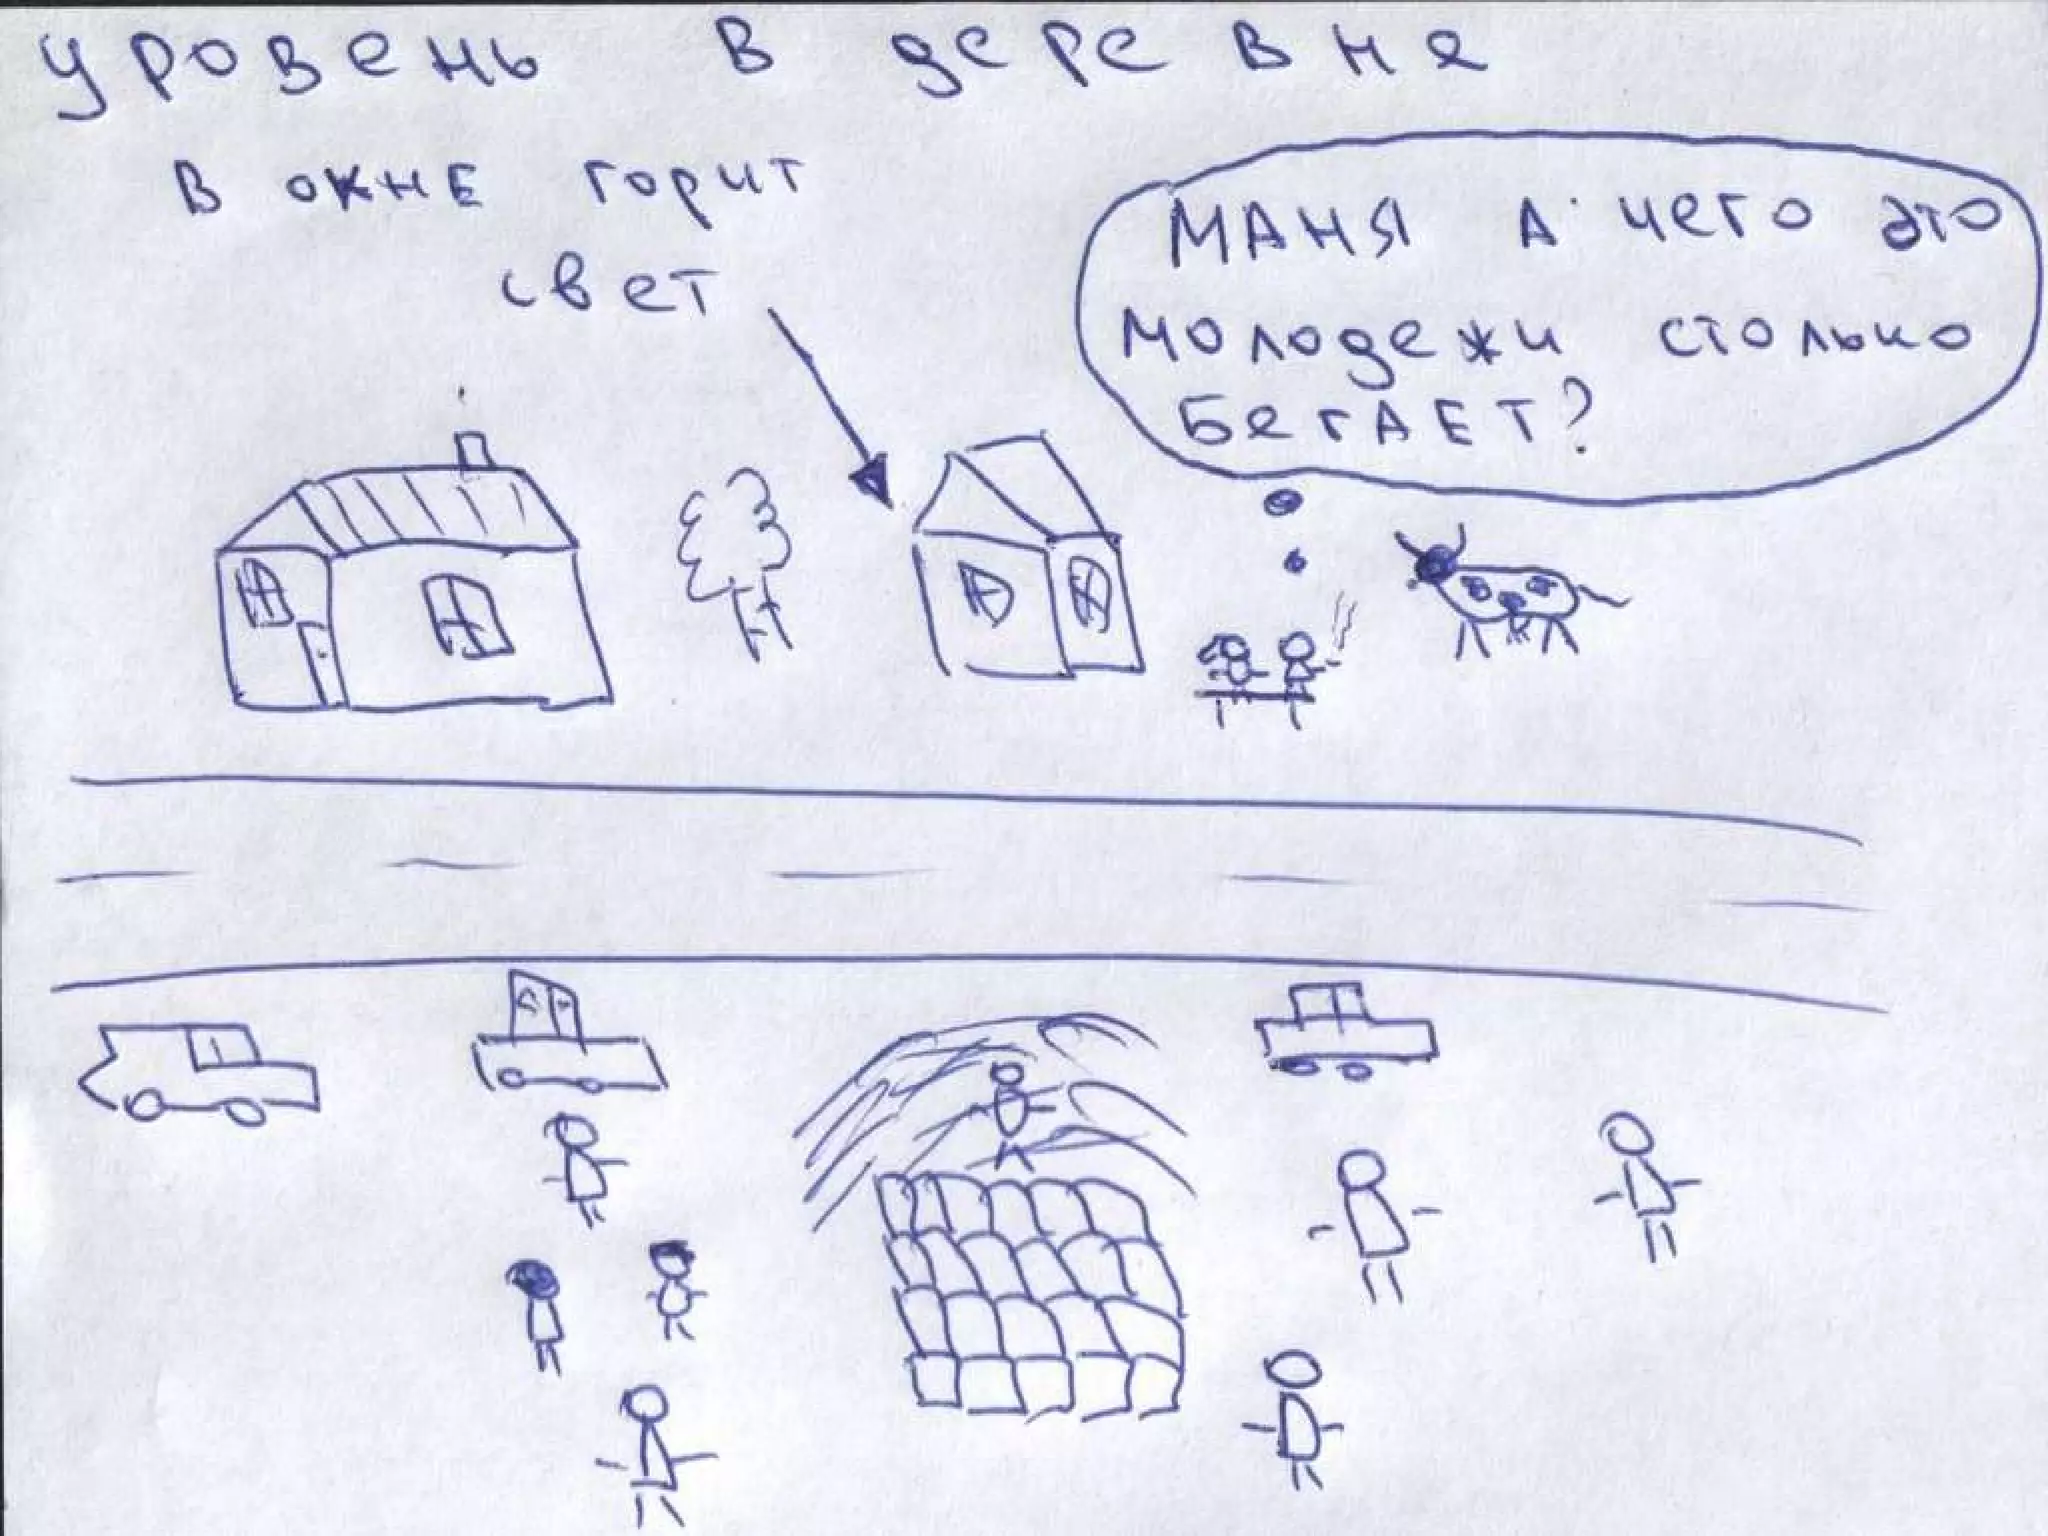 уровень в деревне
в окне горит
свет
МАНЯ А чего это
молодежи столько
БегАЕТ?